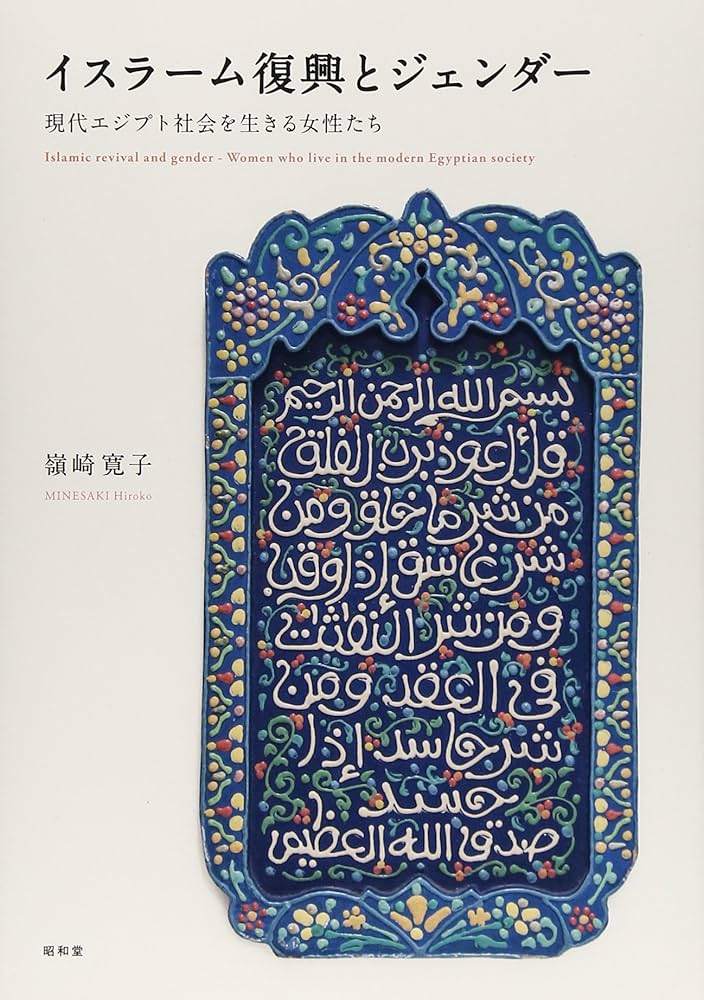 イスラーム復興とジェンダー
現代エジプト社会を生きる女性たち
Islamic revival and gender - Women who live in the modern Egyptian society
嶺崎 寛子
MINESAKI Hiroko
بسم الله الرحمن الرحيم
قل أعوذ برب الفلق
من شر ما خلق ومن
شر غاسق إذا وقب
ومن شر النفثت
فى العقد ومن
شر حاسد إذا
حسد
صدق الله العظيم
昭和堂